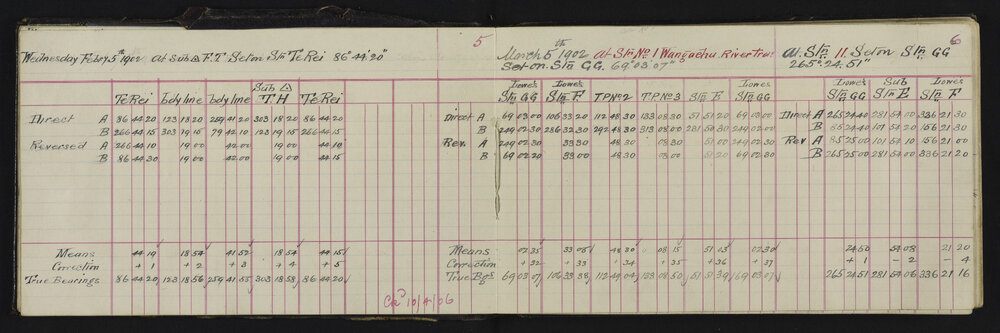 5
Wednesday Feby 5th 1902 at Sub △ F.T Set on Stn Te Rei 86° 44' 20"
Te Rei bdy line bdy line Sub △ T H Te Rei
Direct A 86 44 20 123 18 20 259 41 20 303 18 20 86 44 20
B 266 44 15 303 19 15 79 42 10 123 19 15 266 44 15
Reversed A 266 44 10 19 00 42 00 19 00 44 10
B 86 44 30 19 00 42 00 19 00 44 15
Means 44 19 18 54 41 52 18 54 44 15
Correction + 1 + 2 + 3 + 4 + 5
True Bearings 86 44 20 123 18 56 259 41 55 303 18 58 86 44 20
Ce'd 10/4/06
6
March 5th 1902 at Stn No 1 Wangaehu River Trav
Set on Stn GG. 69° 03' 07"
Lowes Stn GG Lowes Stn F T.P No 2 T.P No 3 Stn E Lowes Stn GG
Direct A 69 03 00 106 33 20 112 48 30 133 08 30 51 51 20 69 03 00
B 249 02 30 286 32 30 292 48 30 313 08 00 281 50 30 249 02 00
Rev. A 249 02 30 33 30 48 30 08 30 51 00 249 02 30
B 69 02 20 33 00 48 30 08 00 51 20 69 02 30
Means 02 35 33 05 48 30 08 15 51 13 02 30
Correction + 32 + 33 + 34 + 35 + 36 + 37
True Bgs 69 03 07 106 33 38 112 49 04 133 08 50 51 51 39 69 03 07
At Stn 11 Set on Stn GG
265° 24' 51"
Lowes Stn GG Sub Stn E Lowes Stn F
Direct A 265 24 40 281 54 00 336 21 30
B 85 24 40 101 54 20 156 21 30
Rev A 85 25 00 101 54 10 156 21 00
B 265 25 00 281 54 00 336 21 20
24 50 54 08 21 20
+ 1 - 2 - 4
265 24 51 281 54 06 336 21 16